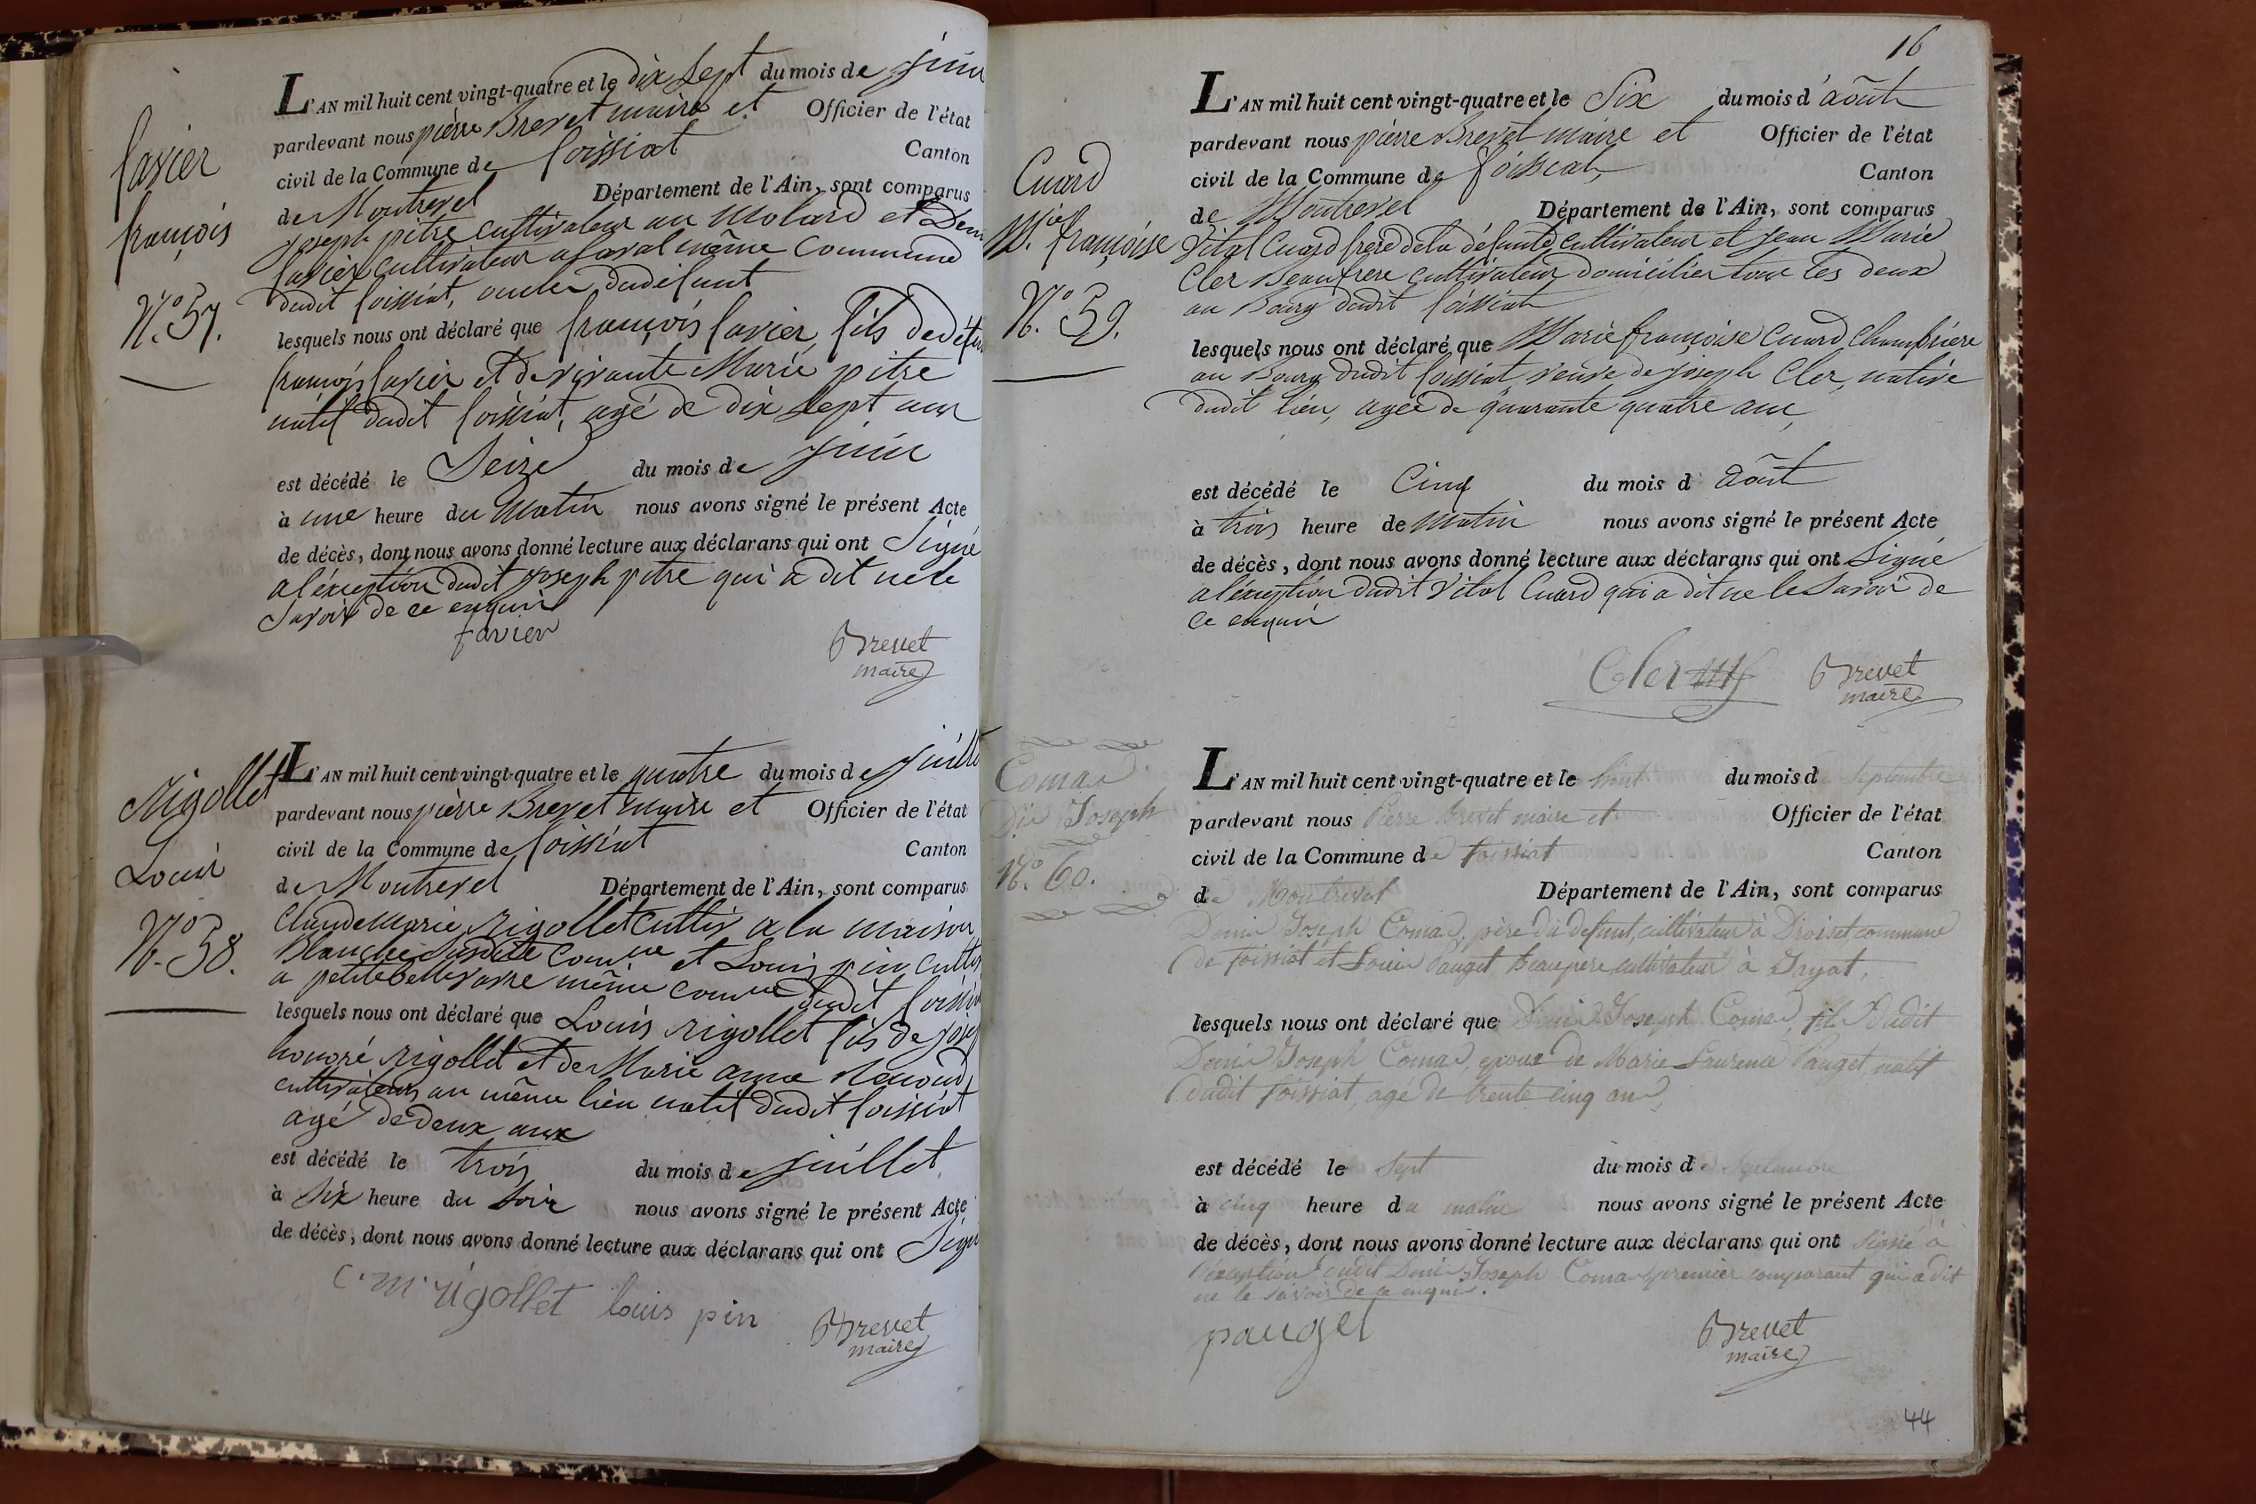 favier
françois
N.º 57.
L'AN mil huit cent vingt-quatre et le dix sept du mois de juin
pardevant nous pierre Brevet maire et Officier de l'état
civil de la Commune de foissiat Canton
de Montrevel Département de l'Ain, sont comparus
joseph pitre cultivateur au Molard et Denis
favier cultivateur a laval même Commune
dudit foissiat, oncles dudéfunt
lesquels nous ont déclaré que françois favier, fils dedéfunt
françois favier et de vivante Marie pitre
natif dudit foissiat, agé de dix sept ans
est décédé le Seize du mois de juin
à une heure du Matin nous avons signé le présent Acte
de décès, dont nous avons donné lecture aux déclarans qui ont Signé
a léxception dudit joseph pitre qui a dit ne le
Savoir de ce enquir
favier
Brevet
maire
Rigollet
Louis
N.º 58.
L'AN mil huit cent vingt-quatre et le quatre du mois de juillet
pardevant nous pierre Brevet maire et Officier de l'état
civil de la Commune de foissiat Canton
de Montrevel Département de l'Ain, sont comparus
Claude Marie Rigollet cultiv a la maison
Blanche Susdite comune et Louis pin cultiv
a petite même comune dudit foissiat
lesquels nous ont déclaré que Louis Rigollet fils de josep
honoré Rigollet et de Marie anne
cultivateurs au même lieu natif dudit foissiat
agé de deux ans
est décédé le trois du mois de juillet
à Six heure du Soir nous avons signé le présent Acte
de décès, dont nous avons donné lecture aux déclarans qui ont Signé
C. M. rigollet louis pin
Brevet
maire
16
Cuard
M.ie françoise
N.º 59.
L'AN mil huit cent vingt-quatre et le Six du mois d'août
pardevant nous pierre Brevet maire et Officier de l'état
civil de la Commune de foissiat Canton
de Montrevel Département de l'Ain, sont comparus
Vital Cuard frère dela défunte, cultivateur et jean Marie
Cler Beaufrere cultivateur domiciliés tous les deux
au Bourg dudit foissiat
lesquels nous ont déclaré que Marie françoise Cuard Chambriere
au Bourg dudit foissiat veuve de joseph Cler, native
dudit lieu, agée de quarante quatre ans,
est décédé le Cinq du mois d août
à trois heure de Matin nous avons signé le présent Acte
de décès, dont nous avons donné lecture aux déclarans qui ont Signé
a léxception dudit Vital Cuard qui a dit ne le Savoir de
ce enquir
Cler
Brevet
maire
Comas
Dis Joseph
N.º 60.
L'AN mil huit cent vingt-quatre et le huit du mois de Septembre
pardevant nous Pierre Brevet maire et Officier de l'état
civil de la Commune de foissiat Canton
de Montrevel Département de l'Ain, sont comparus
Denis Joseph Comas, père du defunt, cultivateur à Droiset commune
de foissiat et Louis Pauget beaupere cultivateur à Dayat,
lesquels nous ont déclaré que Denis Joseph Comas, fils dudit
Denis Joseph Comas, epoux de Marie Laurence Pauget, natif
dudit foissiat, agé de trente cinq ans,
est décédé le Sept du mois de Septembre
à cinq heure du matin nous avons signé le présent Acte
de décès, dont nous avons donné lecture aux déclarans qui ont signé à
l'exception dudit Denis Joseph Comas premier comparant qui a dit
ne le savoir de ce enquis.
pauget
Brevet
maire
44